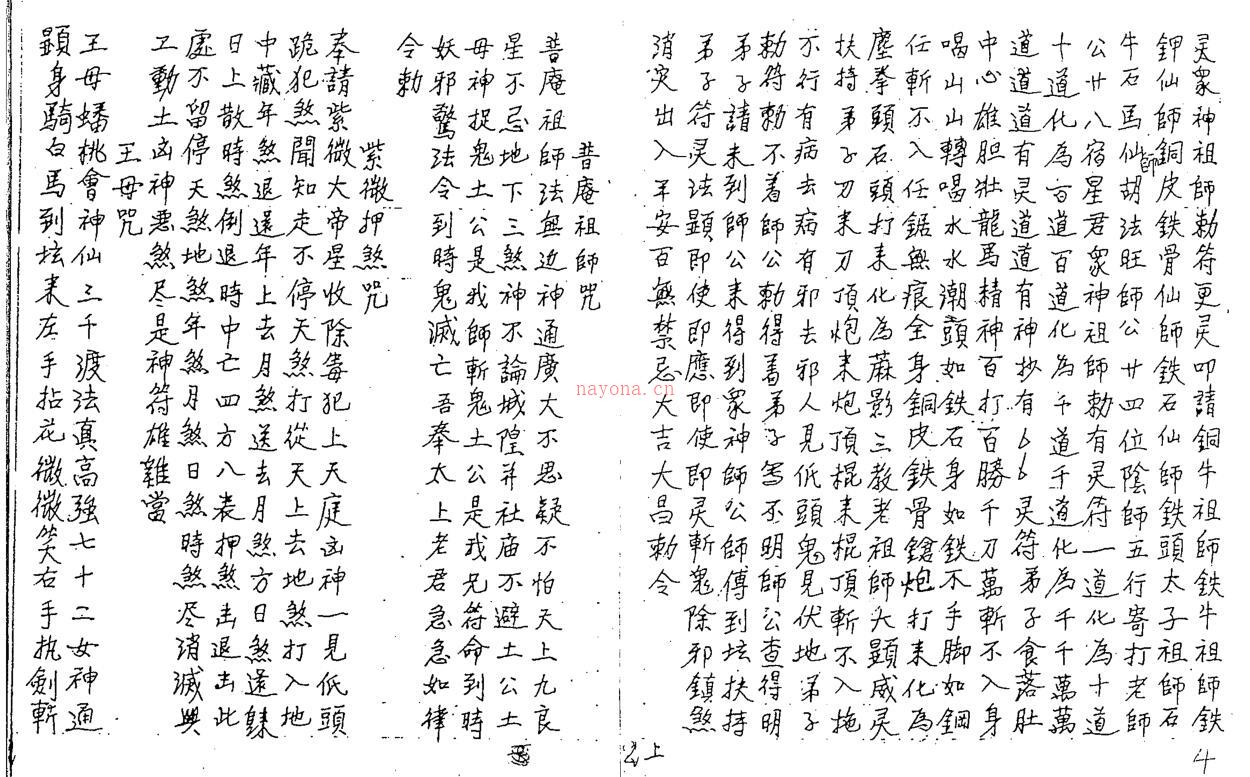 灵眾神祖師勅符更灵叩請銅牛祖師鉄牛祖師鉄
鉀仙師銅皮鉄骨仙師鉄石仙師鉄頭太子祖師石
牛石馬仙師胡法旺師公廿四位陰師五行寄打老師
公廿八宿星君眾神祖師勅有灵符一道化為十道
十道化為百道百道化為千道千道化為千千萬萬
道道道道有灵道道有神抄有灵符弟子食落肚
中心雄胆壯龍馬精神百打百勝千刀萬斬不入身
喝山山轉喝水水潮頭如鉄石身如鉄不手脚如鋼
任斬不入任鋸無痕全身銅皮鉄骨鎗炮打来化為
塵拳頭石頭打来化為蔴影三教老祖師大顕威灵
扶持弟子刀来刀頂炮来炮頂棍来棍頂斬不入拖
不行有病去病有邪去邪人見低頭鬼見伏地弟子
勅符勅不着師公勅得着弟子写不明師公查得明
弟子請未到師公来得到眾神師公師傅到坛扶持
弟子符灵法顕即使即應即使即灵斬鬼除邪鎮煞
消灾出入平安百無禁忌大吉大昌勅令
4
上
普庵祖師咒
普庵祖師法無边神通廣大不思疑不怕天上九良
星不忌地下三煞神不論城隍并社庙不避土公土
母神捉鬼土公是我師斬鬼土公是我兄符命到時
妖邪驚法令到時鬼滅亡吾奉太上老君急急如律
令勅
紫微押煞咒
奉請紫微大帝星收除毒犯上天庭凶神一見低頭
跪犯煞聞知走不停天煞打從天上去地煞打入地
中藏年煞退還年上去月煞送去月煞方日煞還歸
日上散時煞倒退時中亡四方八表押煞出退出此
處不留停天煞地煞年煞月煞日煞時煞尽消滅興
工動土凶神悪煞尽是神符雄雞當
王母咒
王母蟠桃會神仙三千渡法真高強七十二女神通
顕身騎白馬到坛来左手拈花微微笑右手执劍斬
nayona.cn